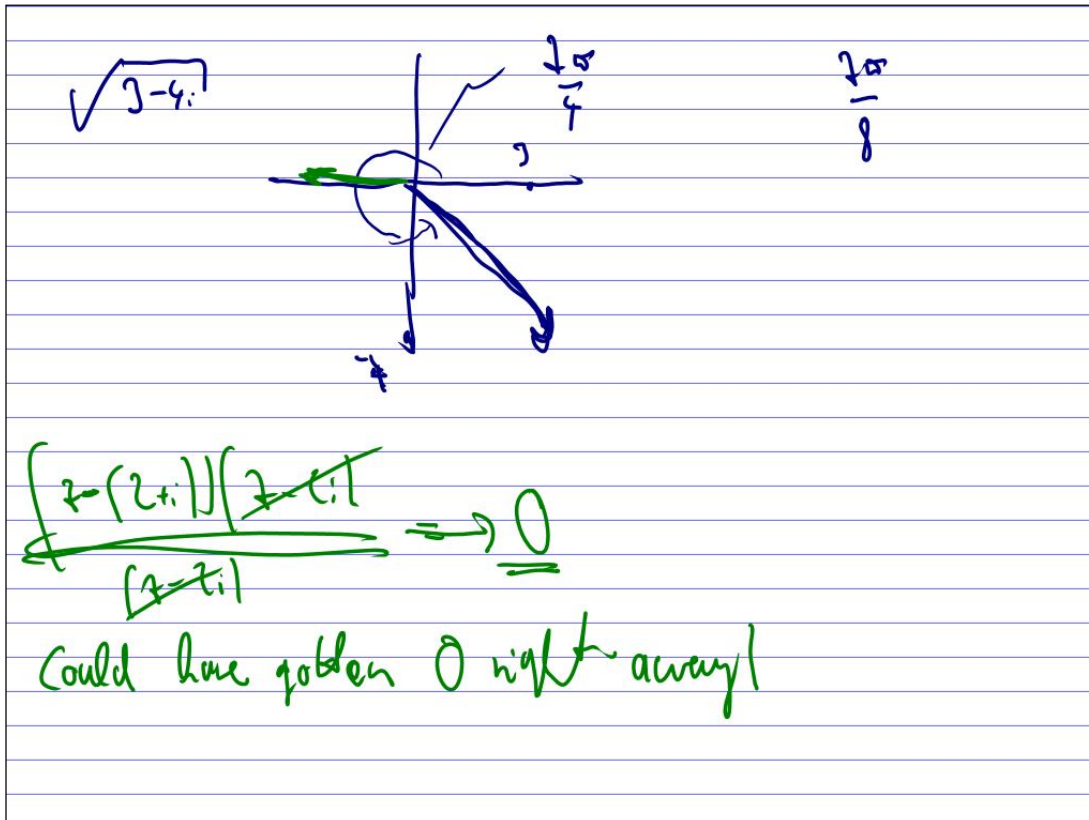 √(3-4i) 7π/4 7π/8
3
-4
[z-(2+i)](z-2i)/(z-2i) => 0
Could have gotten 0 right away!